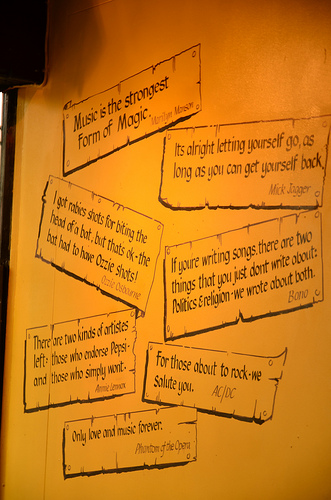 Music is the strongest
Form of Magic. Marilyn Manson
Its alright letting yourself go, as
long as you can get yourself back
Mick Jagger
I got rabies shots for biting the
head of a bat, but thats ok - the
bat had to have Ozzie shots!
Ozzie Osbourne
If youre writing songs, there are two
things that you just dont write about:
Politics & religion - we wrote about both.
Bono
There are two kinds of artistes
left - those who endorse Pepsi -
and those who simply wont.
Annie Lennox
For those about to rock - we
salute you. AC/DC
Only love and music forever.
Phantom of the Opera